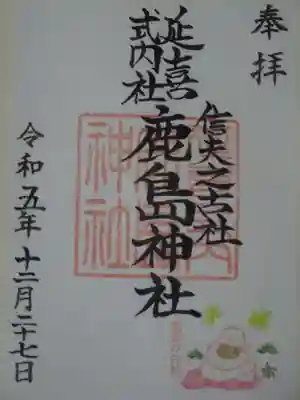 奉拝
信夫之古社
延喜
式内社
鹿島神社
令和五年 十二月二十七日